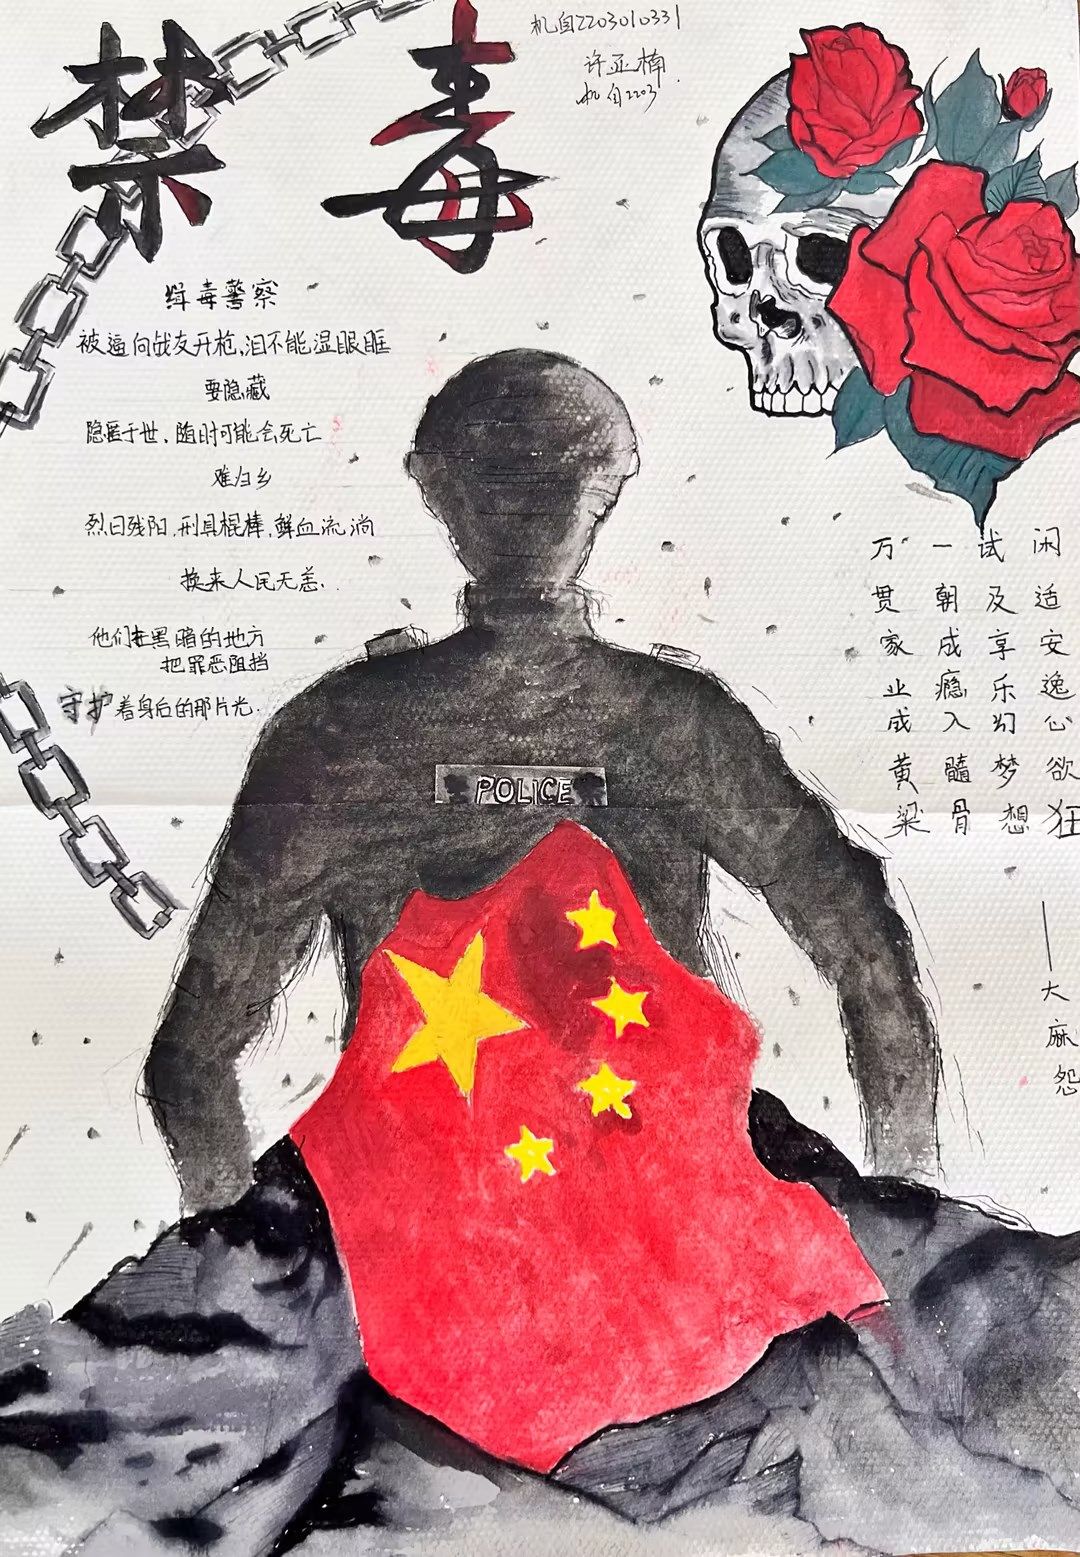 禁毒
机自2203010331
许亚楠
机自2203
缉毒警察
被逼向战友开枪,泪不能湿眼眶
要隐藏
隐匿于世,随时可能会死亡
难归乡
烈日残阳,刑具棍棒,鲜血流淌
换来人民无恙.
他们在黑暗的地方
把罪恶阻挡
守护着身后的那片光.
POLICE
闲适安逸心欲狂
试及享乐幻梦想
一朝成瘾入髓骨
万贯家业成黄粱
——大麻怨